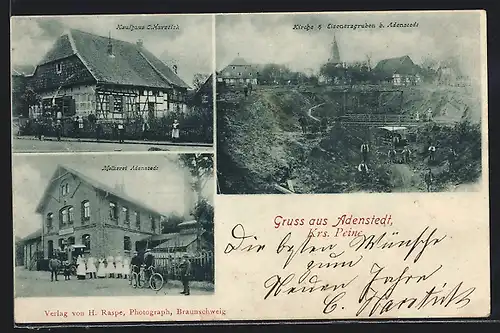 Kaufhaus C. Harstick
Kirche & Eisenerzgruben b. Adenstedt
Molkerei Adenstedt
Gruss aus Adenstedt,
Krs. Peine.
Die besten Wünsche
zum
Neuen Jahre
C. Harstick
Verlag von H. Raspe, Photograph, Braunschweig